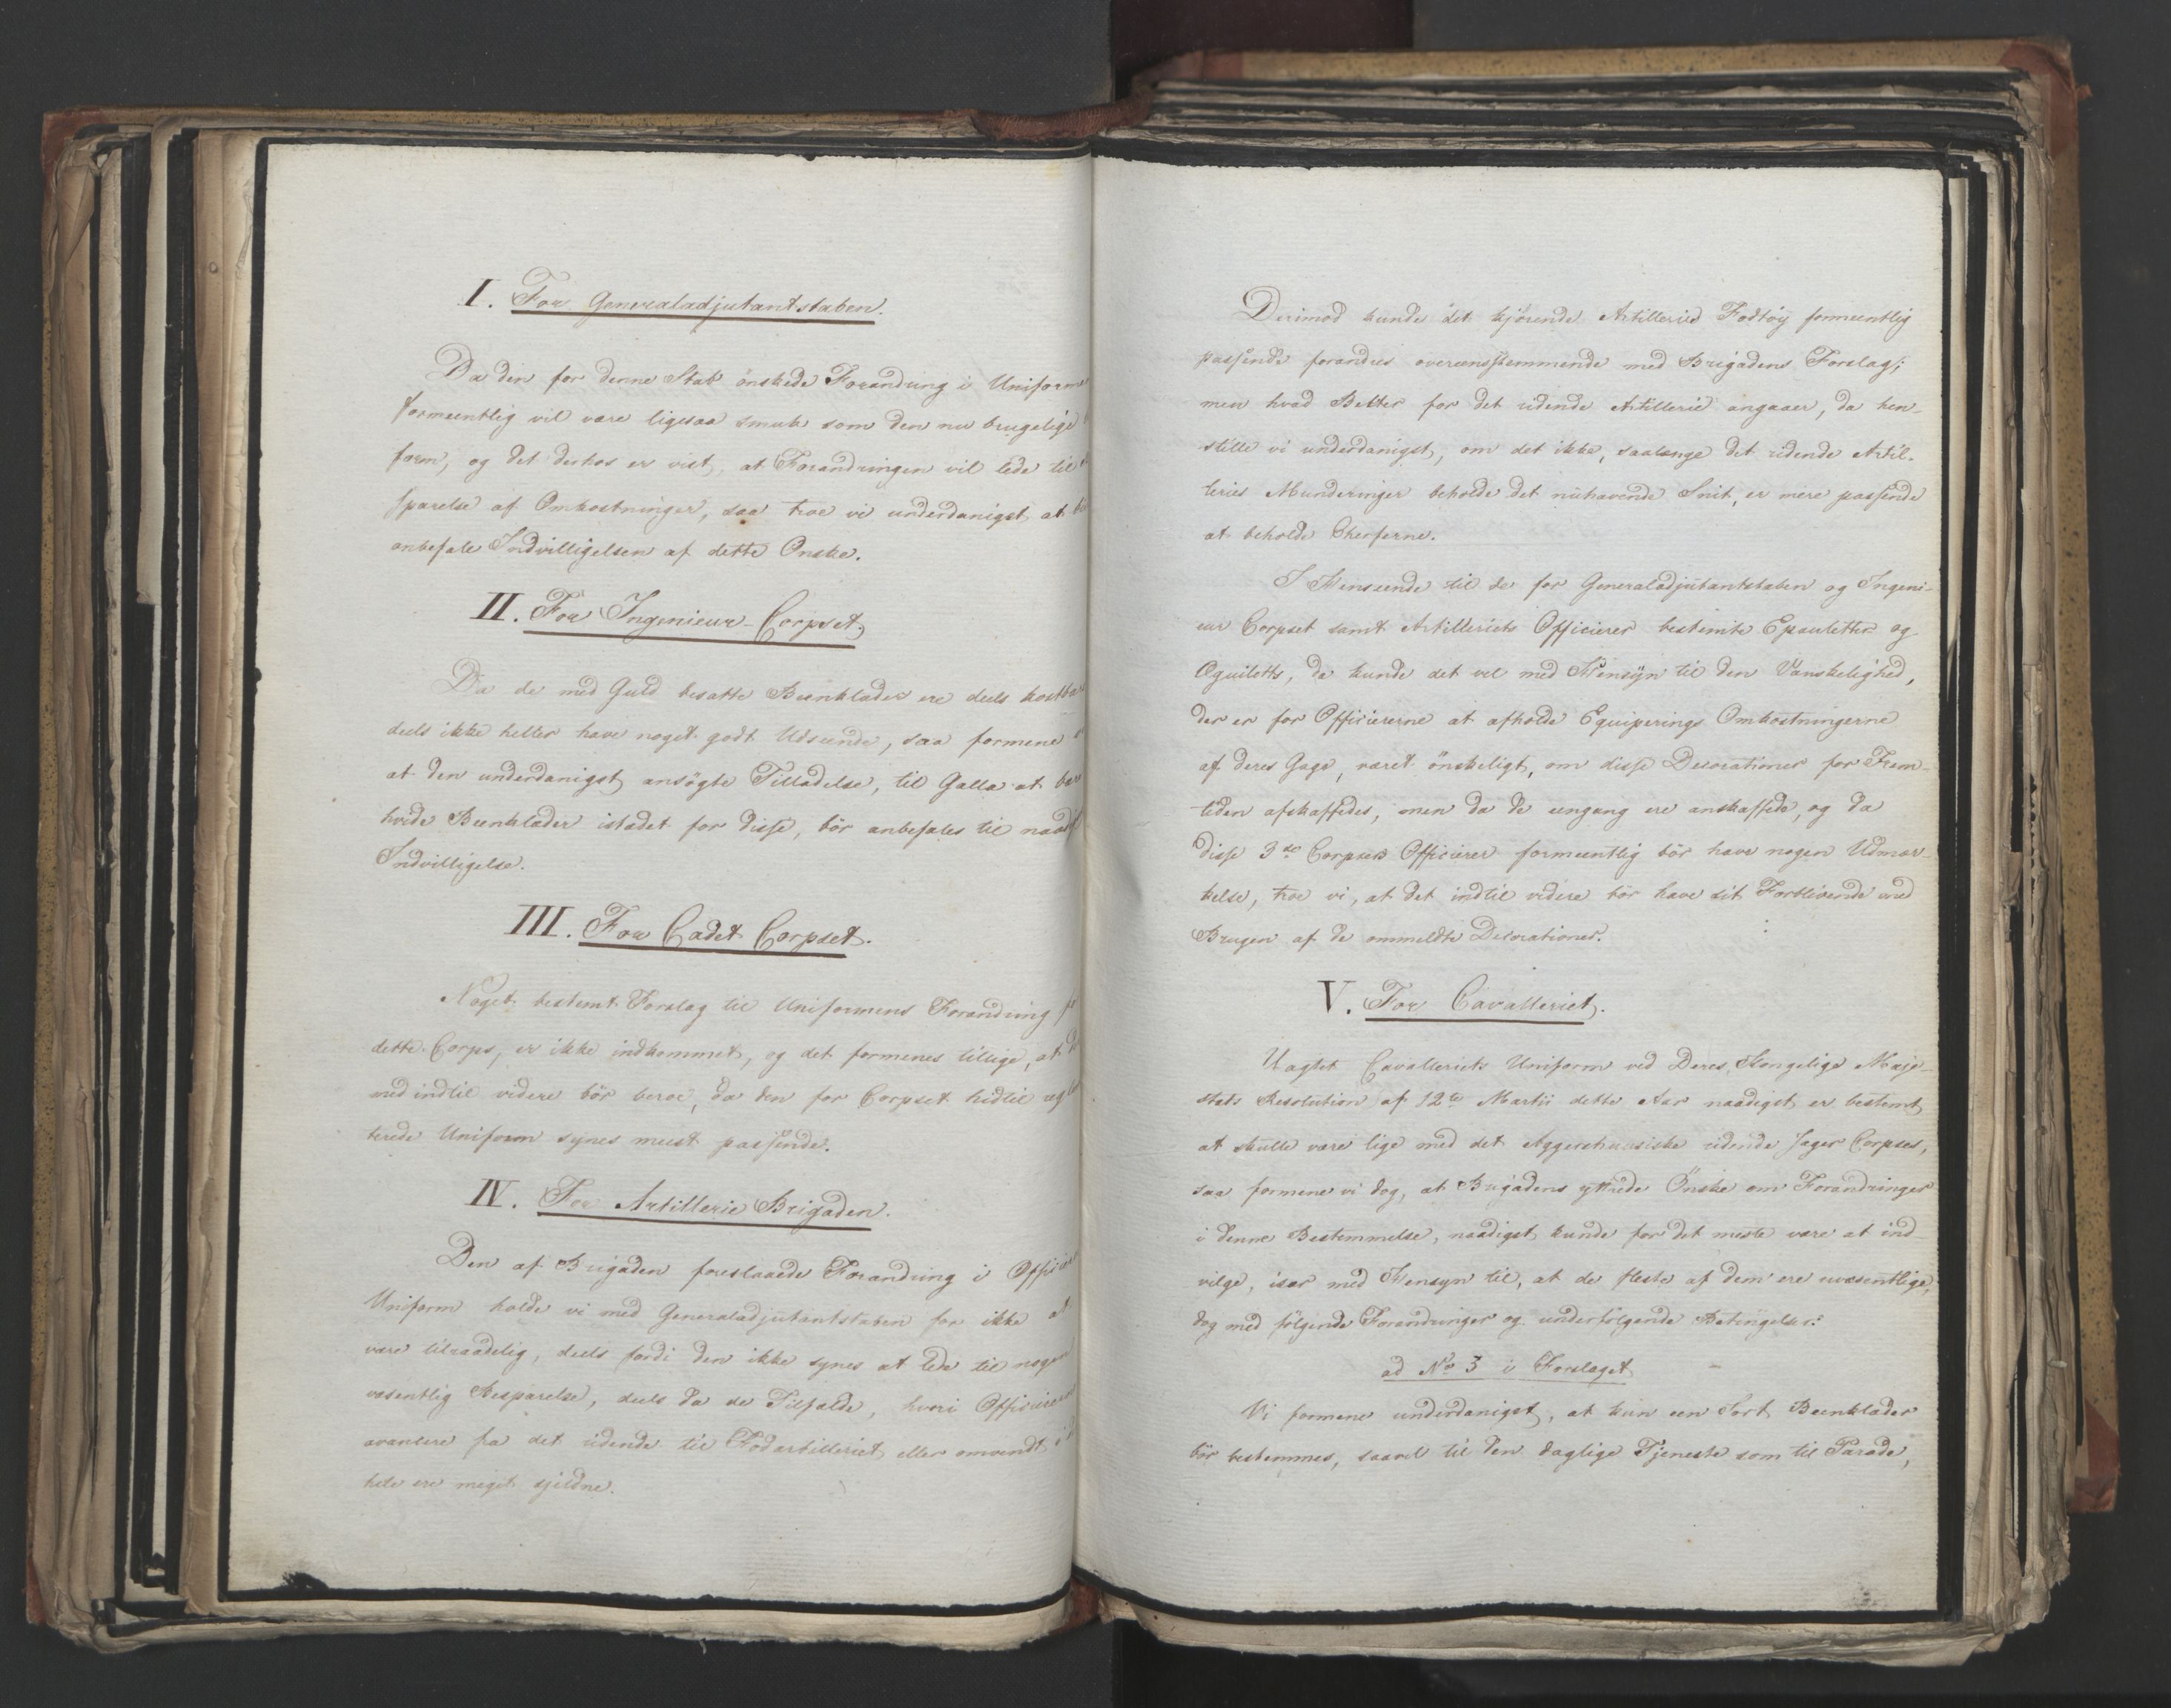 I. For Generaladjutantstaben.
Da den for denne Stab önskede Forandring i Uniform
formeentlig vil være ligesaa smuk som den nu brugelige
form, og det derhos er vist, at Forandringen vil lede til
sparelse af Omkostninger, saa troe vi underdanigst at
anbefale Indvilligelsen af dette Onske.
II. For Ingenieur-Corpset.
Da de med Guld besatte Beenklæder ere deels kostba
deels ikke heller have noget godt Udseende, saa formene
at den underdanigst ansögte Tilladelse, til Galla at bær
hvide Beenklæder istædet for disse, bör anbefales til naadig
Indvilligelse.
III. For Cadet Corpset.
Noget bestemt Forslag til Uniformens Forandring f
dette Corps, er ikke indkommet, og det formenes tillige, at
med indtil videre bör beroe, da den for Corpset hidtil regle
terede Uniform synes meest passende.
IV. For Artillerie Brigaden.
Den af Brigaden foreslaaede Forandring i Officie
Uniform holde vi med Generaladjutantstaben for ikke at
være tilraadelig, deels fordi den ikke synes at lede til nogen
væsentlig Besparelse, deels da de Tilfælde, hvori Officierer
avancere fra det ridende til Fodartilleriet eller omvendt i
hele ere meget sjeldne.
Derimod kunde det kjörende Artilleries Fodtöy formeentlig
passende forandres overeensstemmende med Brigadens Forslag;
men hvad Belter for det ridende Artillerie angaaer, da hen-
stille vi underdanigst, om det ikke, saalænge det ridende Artil-
leries Munderinger beholde det nuhavende Snit, er mere passende
at beholde Cherferne.
I Henseende til de for Generaladjutantstaben og Ingeni-
eur Corpset samt Artilleriets Officierer bestemte Epauletter og
Æguiletts, da kunde det vel med Hensyn til den Vanskelighed,
der er for Officiererne at afholde Equiperings Omkostningerne
af deres Gage, været önskeligt, om disse Decorationer for Frem-
tiden afskaffedes, men da de eengang ere anskaffede, og da
disse 3de Corpsers Officierer formeentlig bör have nogen Udmær-
kelse, troe vi, at det indtil videre bör have sit Forblivende ved
Brugen af de ommeldte Decorationer.
V. For Cavalleriet.
Uagtet Cavalleriets Uniform ved Deres Kongelige Maje-
stæts Resolution af 12te Martii dette Aar naadigst er bestemt
at skulle være lige med det Aggershuusiske ridende Jæger Corpses,
saa formene vi dog, at Brigadens yttrede Önske om Forandringer
i denne Bestemmelse, naadigst kunde for det meste være at ind
vilge, især med Hensyn til, at de fleste af dem ere uvæsentlige,
dog med fölgende Forandringer og underfölgende Betingelser:
ad No 3 i Forslaget
Vi formene underdanigst, at kun een Sort Beenklæder
bör bestemmes, saavel til den daglige Tjeneste som til Parade,